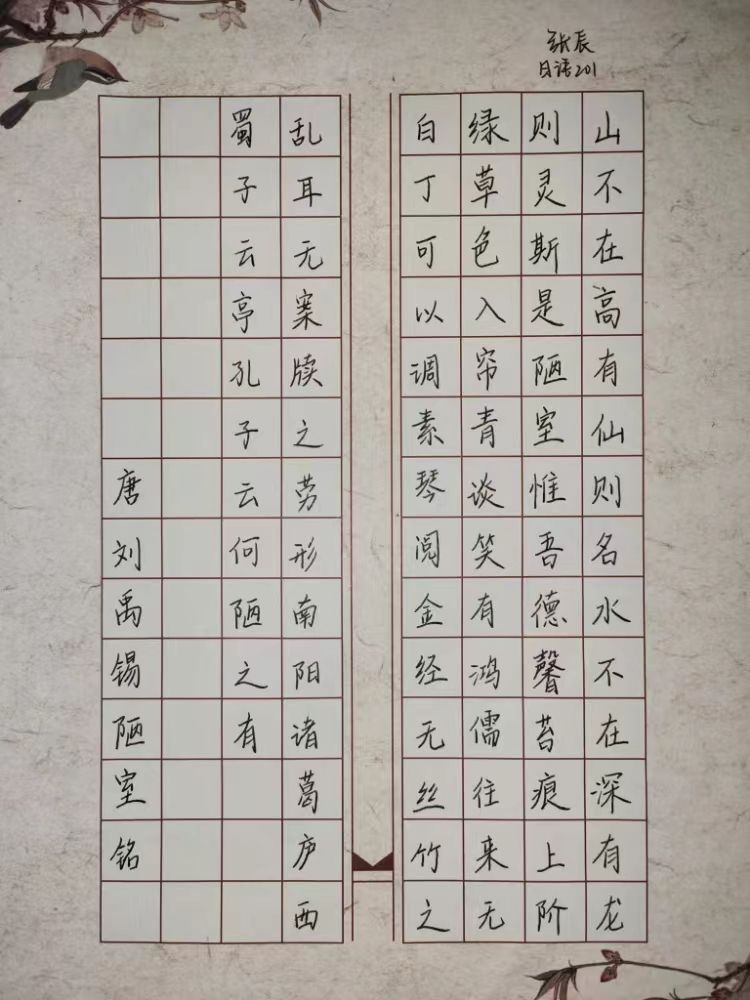 张辰
日语201
山不在高有仙则名水不在深有龙
则灵斯是陋室惟吾德馨苔痕上阶
绿草色入帘青谈笑有鸿儒往来无
白丁可以调素琴阅金经无丝竹之
乱耳无案牍之劳形南阳诸葛庐西
蜀子云亭孔子云何陋之有
唐刘禹锡陋室铭